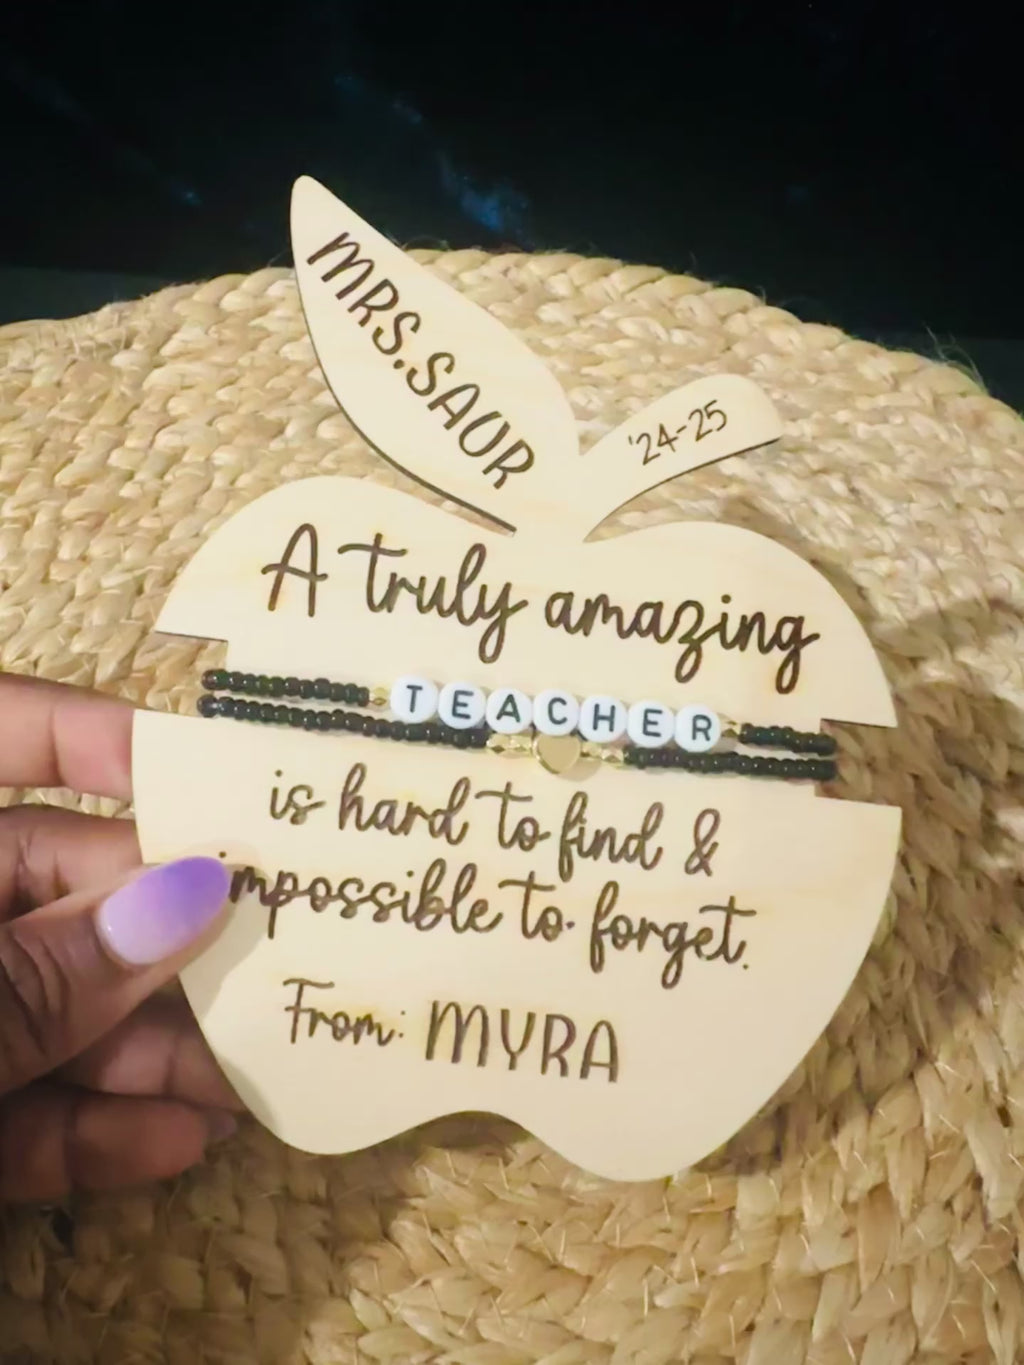 MRS. SAUR
'24-25
A truly amazing
TEACHER
is hard to find &
impossible to forget.
From: MYRA